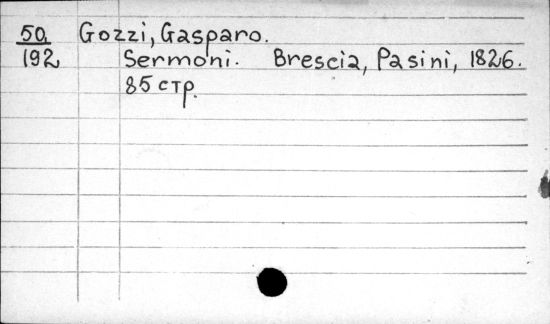 50 Gozzi, Gasparo.
192 Sermoni. Brescia, Pasini, 1826.
85 стр.